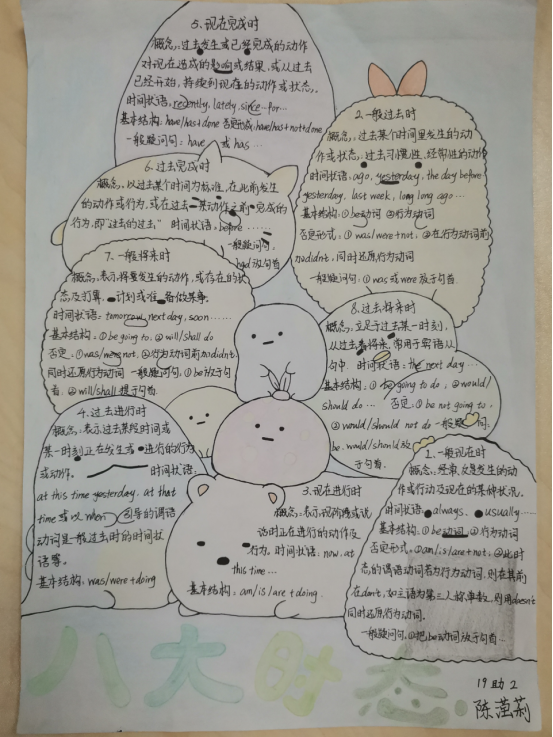 5、现在完成时
概念:过去发生或已经完成的动作
对现在造成的影响或结果,或从过去
已经开始,持续到现在的动作或状态。
时间状语:recently, lately, since...for...
基本结构:have/has+done 否定形式:have/has+not+done
一般疑问句:have 或 has...
2、一般过去时
概念:过去某个时间里发生的动
作或状态;过去习惯性、经常性的动作
时间状语:ago, yesterday, the day before
yesterday, last week, long long ago...
基本结构:①be动词 ②行为动词
否定形式:①was/were+not, ②在行为动词前
加didn't,同时还原行为动词
一般疑问句:①was或were放于句首
6、过去完成时
概念:以过去某个时间为标准,在此前发生
的动作或行为,或在过去某动作之前完成的
行为,即"过去的过去" 时间状语:before
一般疑问句:
had放句首
7、一般将来时
概念:表示将要发生的动作,或存在的状
态及打算、计划或准备做某事。
时间状语:tomorrow, next day, soon......
基本结构:①be going to, ②will/shall do
否定:①was/were not, ②行为动词前加didn't
同时还原行为动词 一般疑问句:①be放于句
首,②will/shall提于句首
8、过去将来时
概念:立足于过去某一时刻,
从过去看将来,常用于宾语从
句中. 时间状语:the next day...
基本结构:①be going to do, ②would/
should do... 否定:①be not going to,
②would/should not do 一般疑问句:
be. would/should放
于句首.
4、过去进行时
概念:表示过去某段时间或
某一时刻正在发生或进行的行为
或动作。 时间状语:
at this time yesterday, at that
time 或以 when 引导的谓语
动词是一般过去时的时间状
语等。
基本结构:was/were+doing
3、现在进行时
概念:表示现阶段或说
话时正在进行的动作及
行为, 时间状语:now, at
this time...
基本结构:am/is/are+doing.
1、一般现在时
概念:经常、反复发生的动
作或行为及现在的某种状况。
时间状语:always, usually......
基本结构:①be动词,②行为动词
否定形式:①am/is/are+not; ②此时
态的谓语动词若为行为动词,则在其前
加don't,如主语为第三人称单数,则用doesn't
同时还原行为动词。
一般疑问句,①把be动词放于句首...
八大时态
19 助 2